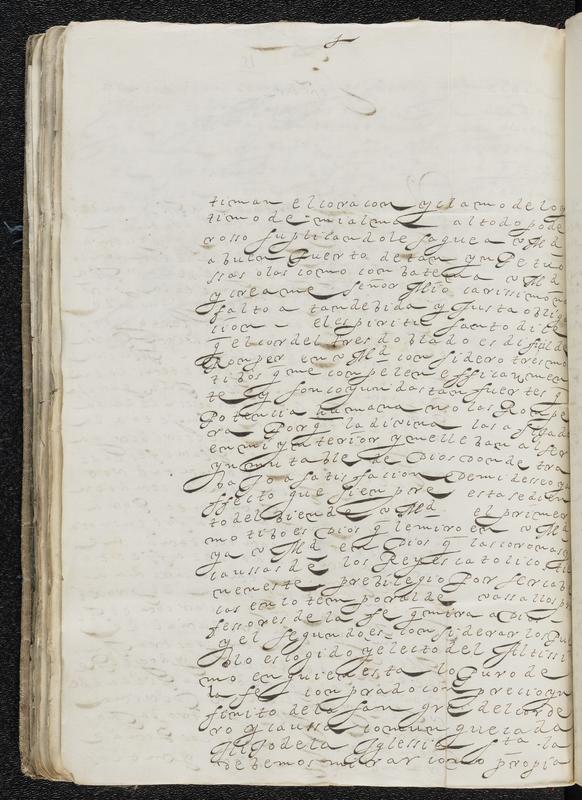 timan el coracon y clamo de lo yn
timo de mi alma al todo pode
rosso suplicandole saque a vMd
a buen Puerto de tan ynPetuo
ssas olas como con baten a vMd
y creame señor Mio carissimo no
falto a tan debida y Justa oblig
cion - el espiritu santo dice
q el cordel tres doblado es dificil de
Romper en vMd considero tres mo
tibos q me compelen efficazmen
te y son coyundas tan fuertes q
Potencia humana no las Rompe
ra Porq la divina las a fijado
en mi ynterior y me lleban al ser
ynmutable de Dios donde tra
bajo a satisfacion de mi desseo ya
ffecto que siempre esta sedien
to del bien de vMd el primer
motibo es Dios q le miro en vMd
ya vMd en Dios q las coronas y
caussas de los Reyes catolicos tie
nen este prebilegio Por ser cabe
cas en lo temporal de vassallos pro
fessores de la fe q mira a Dios
y el segundo es considerar los Pue
blo escogido y electo del Altissi
mo en quien esta lo Puro de
la fe comprado con precio yn
finito de la sangre del corde
ro y caussa comun que cada
Hijo de la Iglessia sta la
debemos mirar como propia